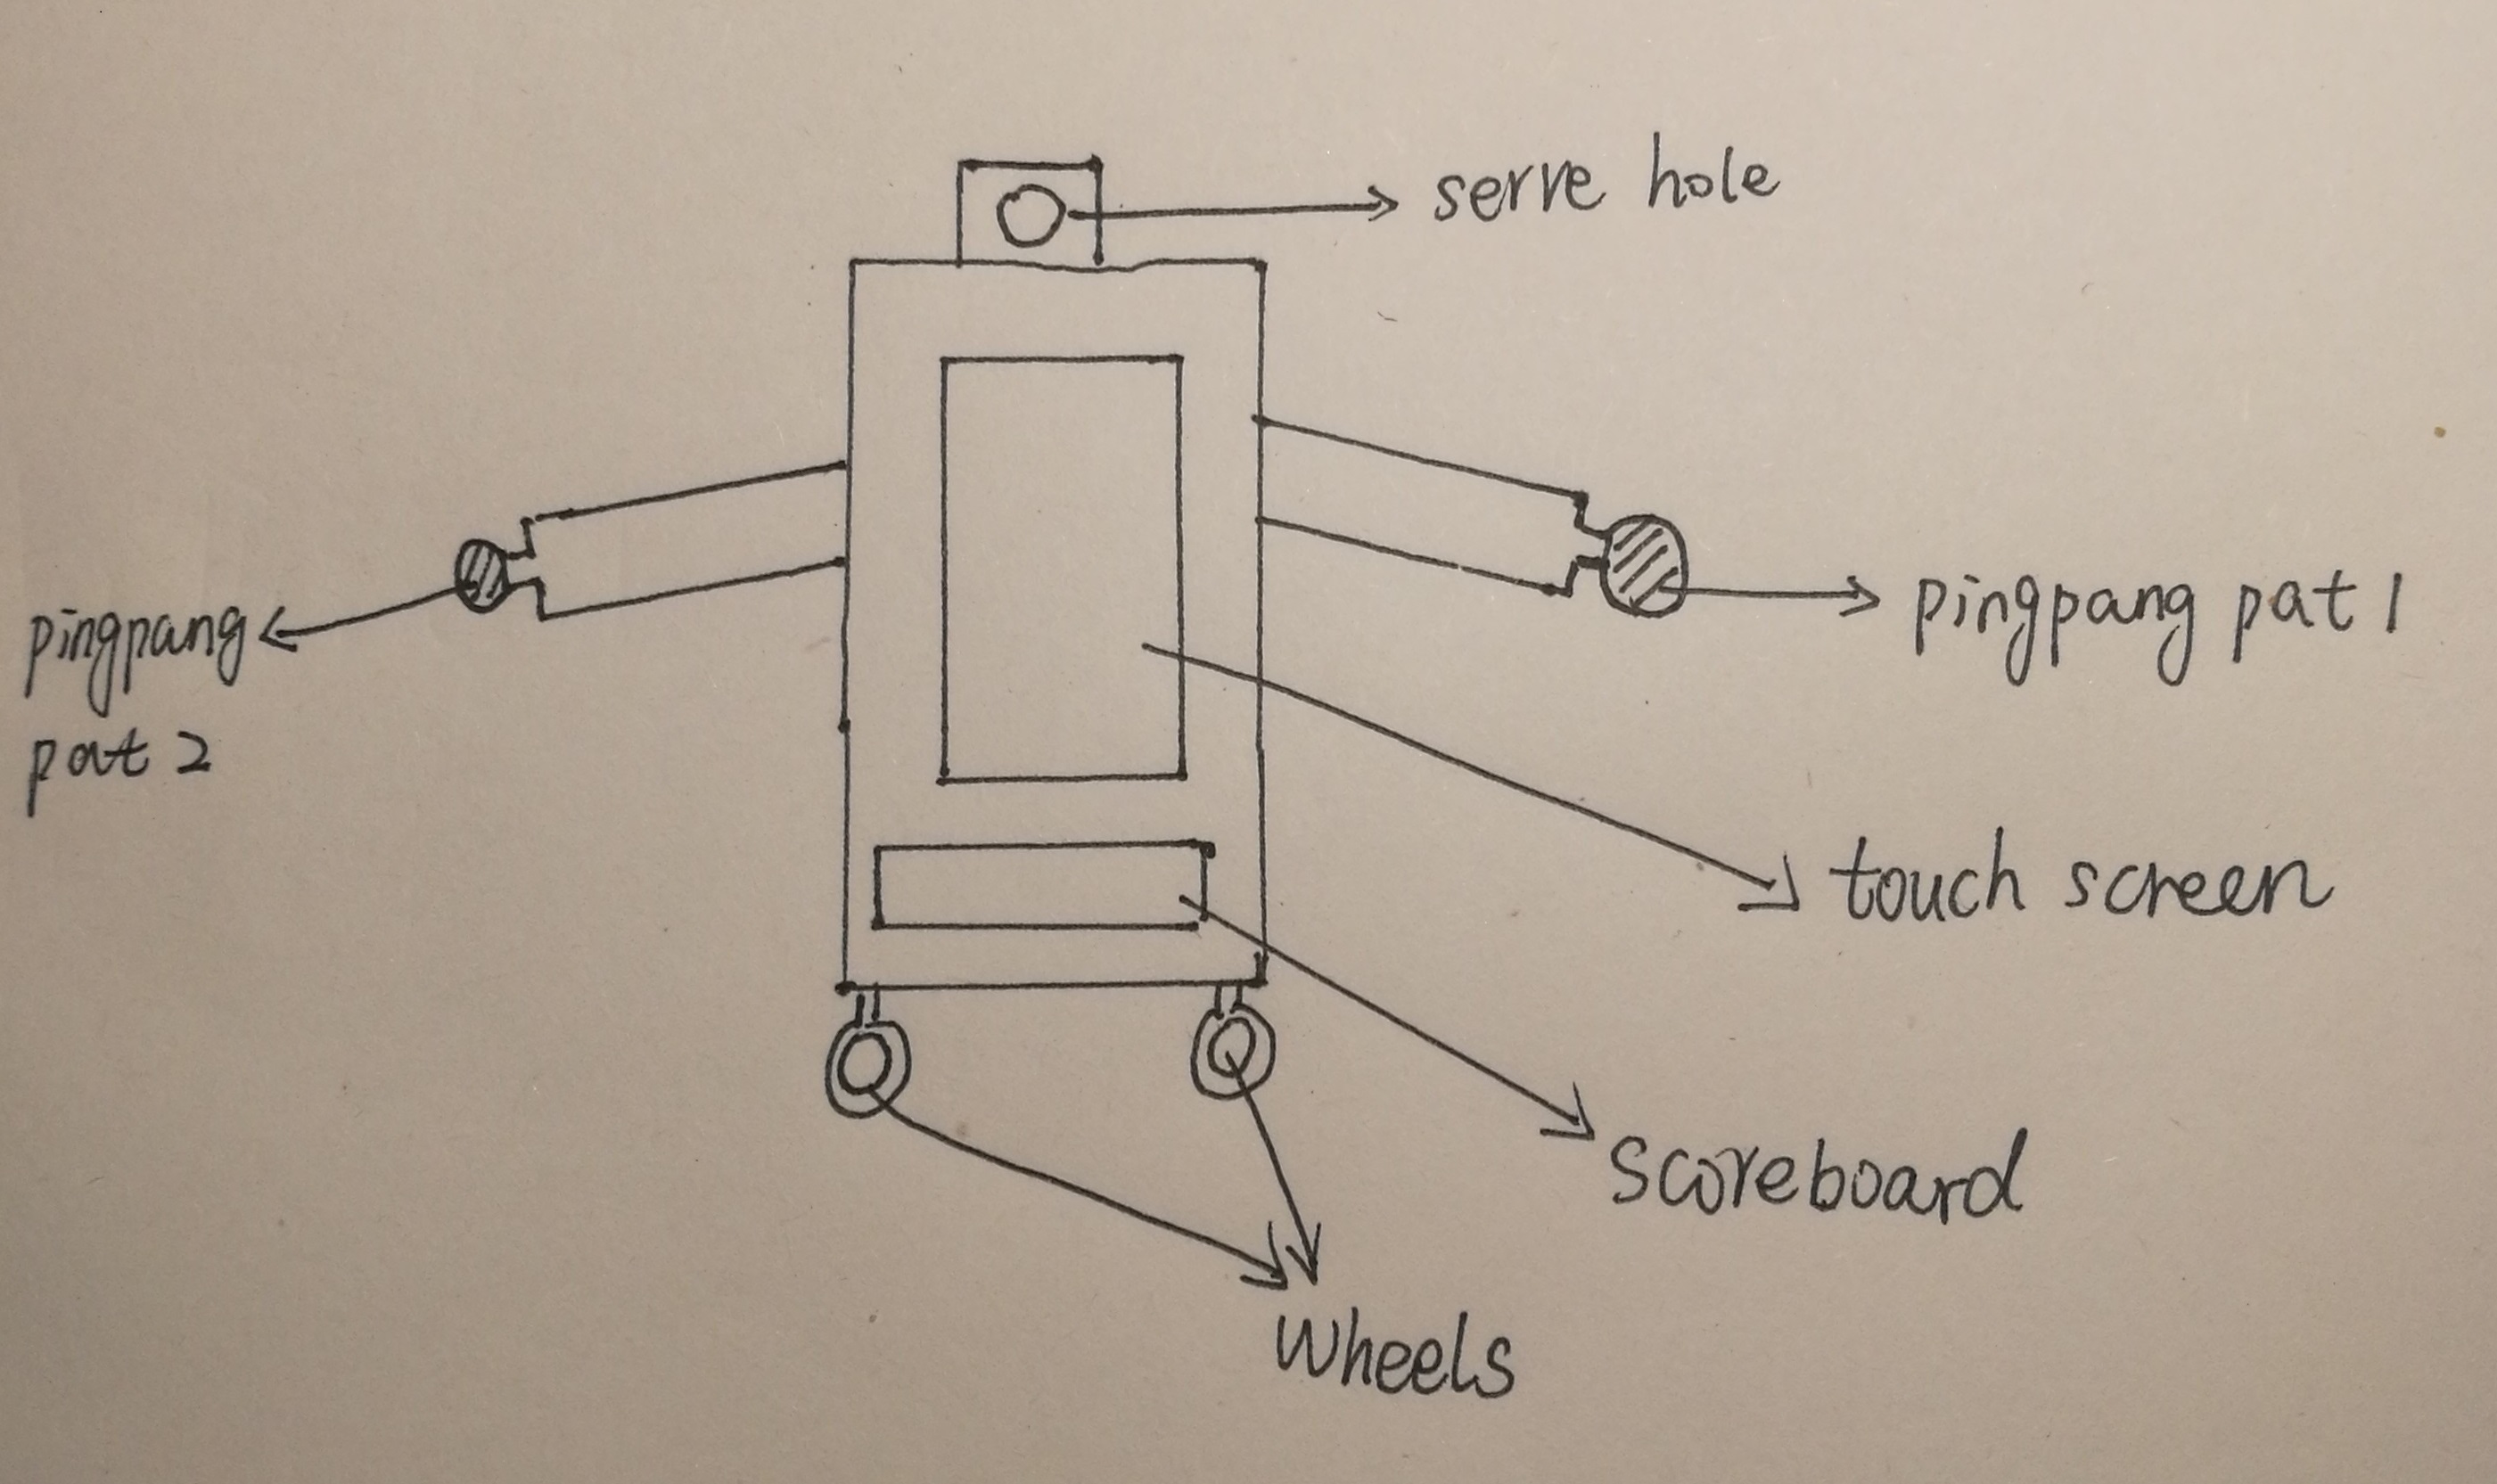 serve hole
pingpang
pat 2
pingpang pat 1
touch screen
scoreboard
wheels